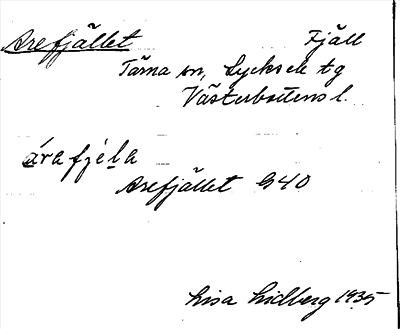 Arefjället Fjäll
Tärna sn, Lycksele tg
Västerbottens l.
árafjéla
Arefjället G40
Lisa Lidberg 1935